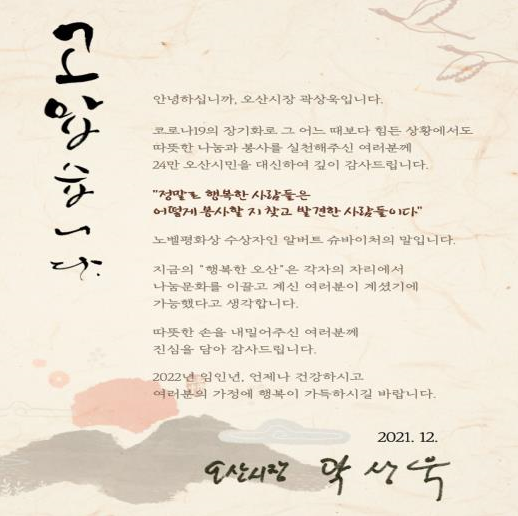 고맙습니다.
안녕하십니까, 오산시장 곽상욱입니다.
코로나19의 장기화로 그 어느 때보다 힘든 상황에서도
따뜻한 나눔과 봉사를 실천해주신 여러분께
24만 오산시민을 대신하여 깊이 감사드립니다.
"정말로 행복한 사람들은
어떻게 봉사할 지 찾고 발견한 사람들이다."
노벨평화상 수상자인 알버트 슈바이처의 말입니다.
지금의 "행복한 오산"은 각자의 자리에서
나눔문화를 이끌고 계신 여러분이 계셨기에
가능했다고 생각합니다.
따뜻한 손을 내밀어주신 여러분께
진심을 담아 감사드립니다.
2022년 임인년, 언제나 건강하시고
여러분의 가정에 행복이 가득하시길 바랍니다.
2021. 12.
오산시장 곽상욱